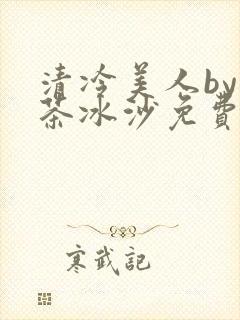 清冷美人by
茶冰沙免費
寒武記